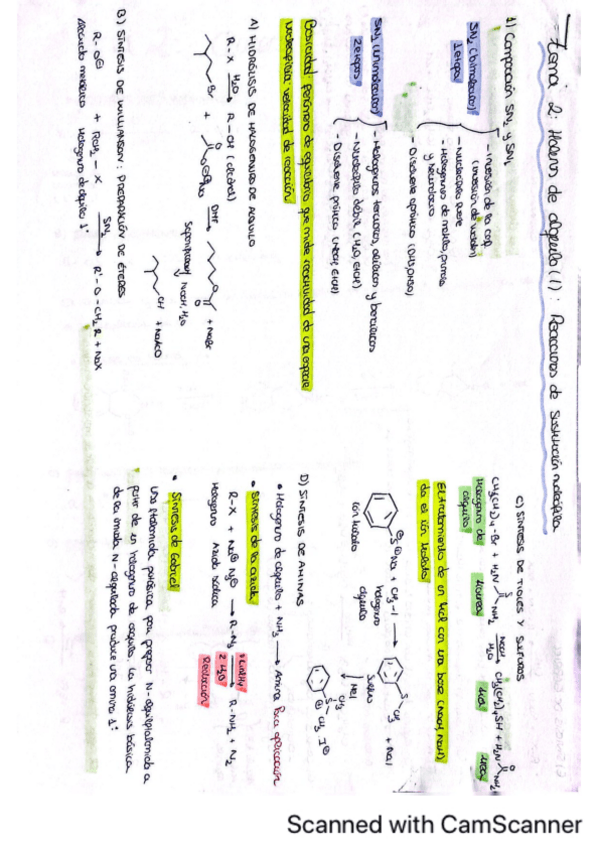 Tema 2: Haluros de alquilo (I): Reacciones de sustitución nucleófila
1) Comparación SN2 y SN1
SN2 (bimolecular)
1 etapa
- Inversión de la conf.
(inversión de Walden)
- Nucleófilo fuerte
- Halogenuros de metilo, primario
y secundario
- Disolvente aprótico (DMF, DMSO)
SN1 (unimolecular)
2 etapas
- Halogenuros terciarios, alílicos y bencílicos
- Nucleófilo débil (H2O, EtOH)
- Disolvente prótico (MeOH, EtOH)
Basicidad: parámetro de equilibrio que mide reactividad de una especie
Nucleofilia: velocidad de reacción
A) HIDRÓLISIS DE HALOGENUROS DE ALQUILO
R-X H2O → R-OH (alcohol)
Br + O⊖Na⊕ DMF → + NaBr
Saponificación NaOH, H2O
OH + NaAcO
B) SÍNTESIS DE WILLIAMSON: PREPARACIÓN DE ÉTERES
R-O⊖ + RCH2-X SN2 → R'-O-CH2R + NaX
Alcóxido metálico Halogenuro de alquilo 1º
C) SÍNTESIS DE TIOLES Y SULFUROS
CH3(CH2)4-Br + H2N S NH2 NaOH H2O → CH3(CH2)4SH + H2N O NH2
Halogenuro de
alquilo
tiourea
tiol
urea
El tratamiento de un tiol con una base (NaOH, NaH)
da el ión tiolato
S⊖Na⊕ + CH3-I → S CH3 + NaI
ión tiolato halogenuro
alquilo
Sulfuro
CH3
S⊕ CH3 I⊖
D) SÍNTESIS DE AMINAS
• Halogenuro de alquilo + NH3 → Amina Poca aplicación
• Síntesis de la azida
R-X + Na⊕ N3⊖ → R-N3 1. LiAlH4 2. H2O → R-NH2 + N2
Halogenuro Azida sódica
Reducción
• Síntesis de Gabriel
Usa ftalimida potásica para preparar N-alquilftalimida a
partir de un halogenuro de alquilo. La hidrólisis básica
de la imida N-alquilada produce una amina 1ª
Scanned with CamScanner